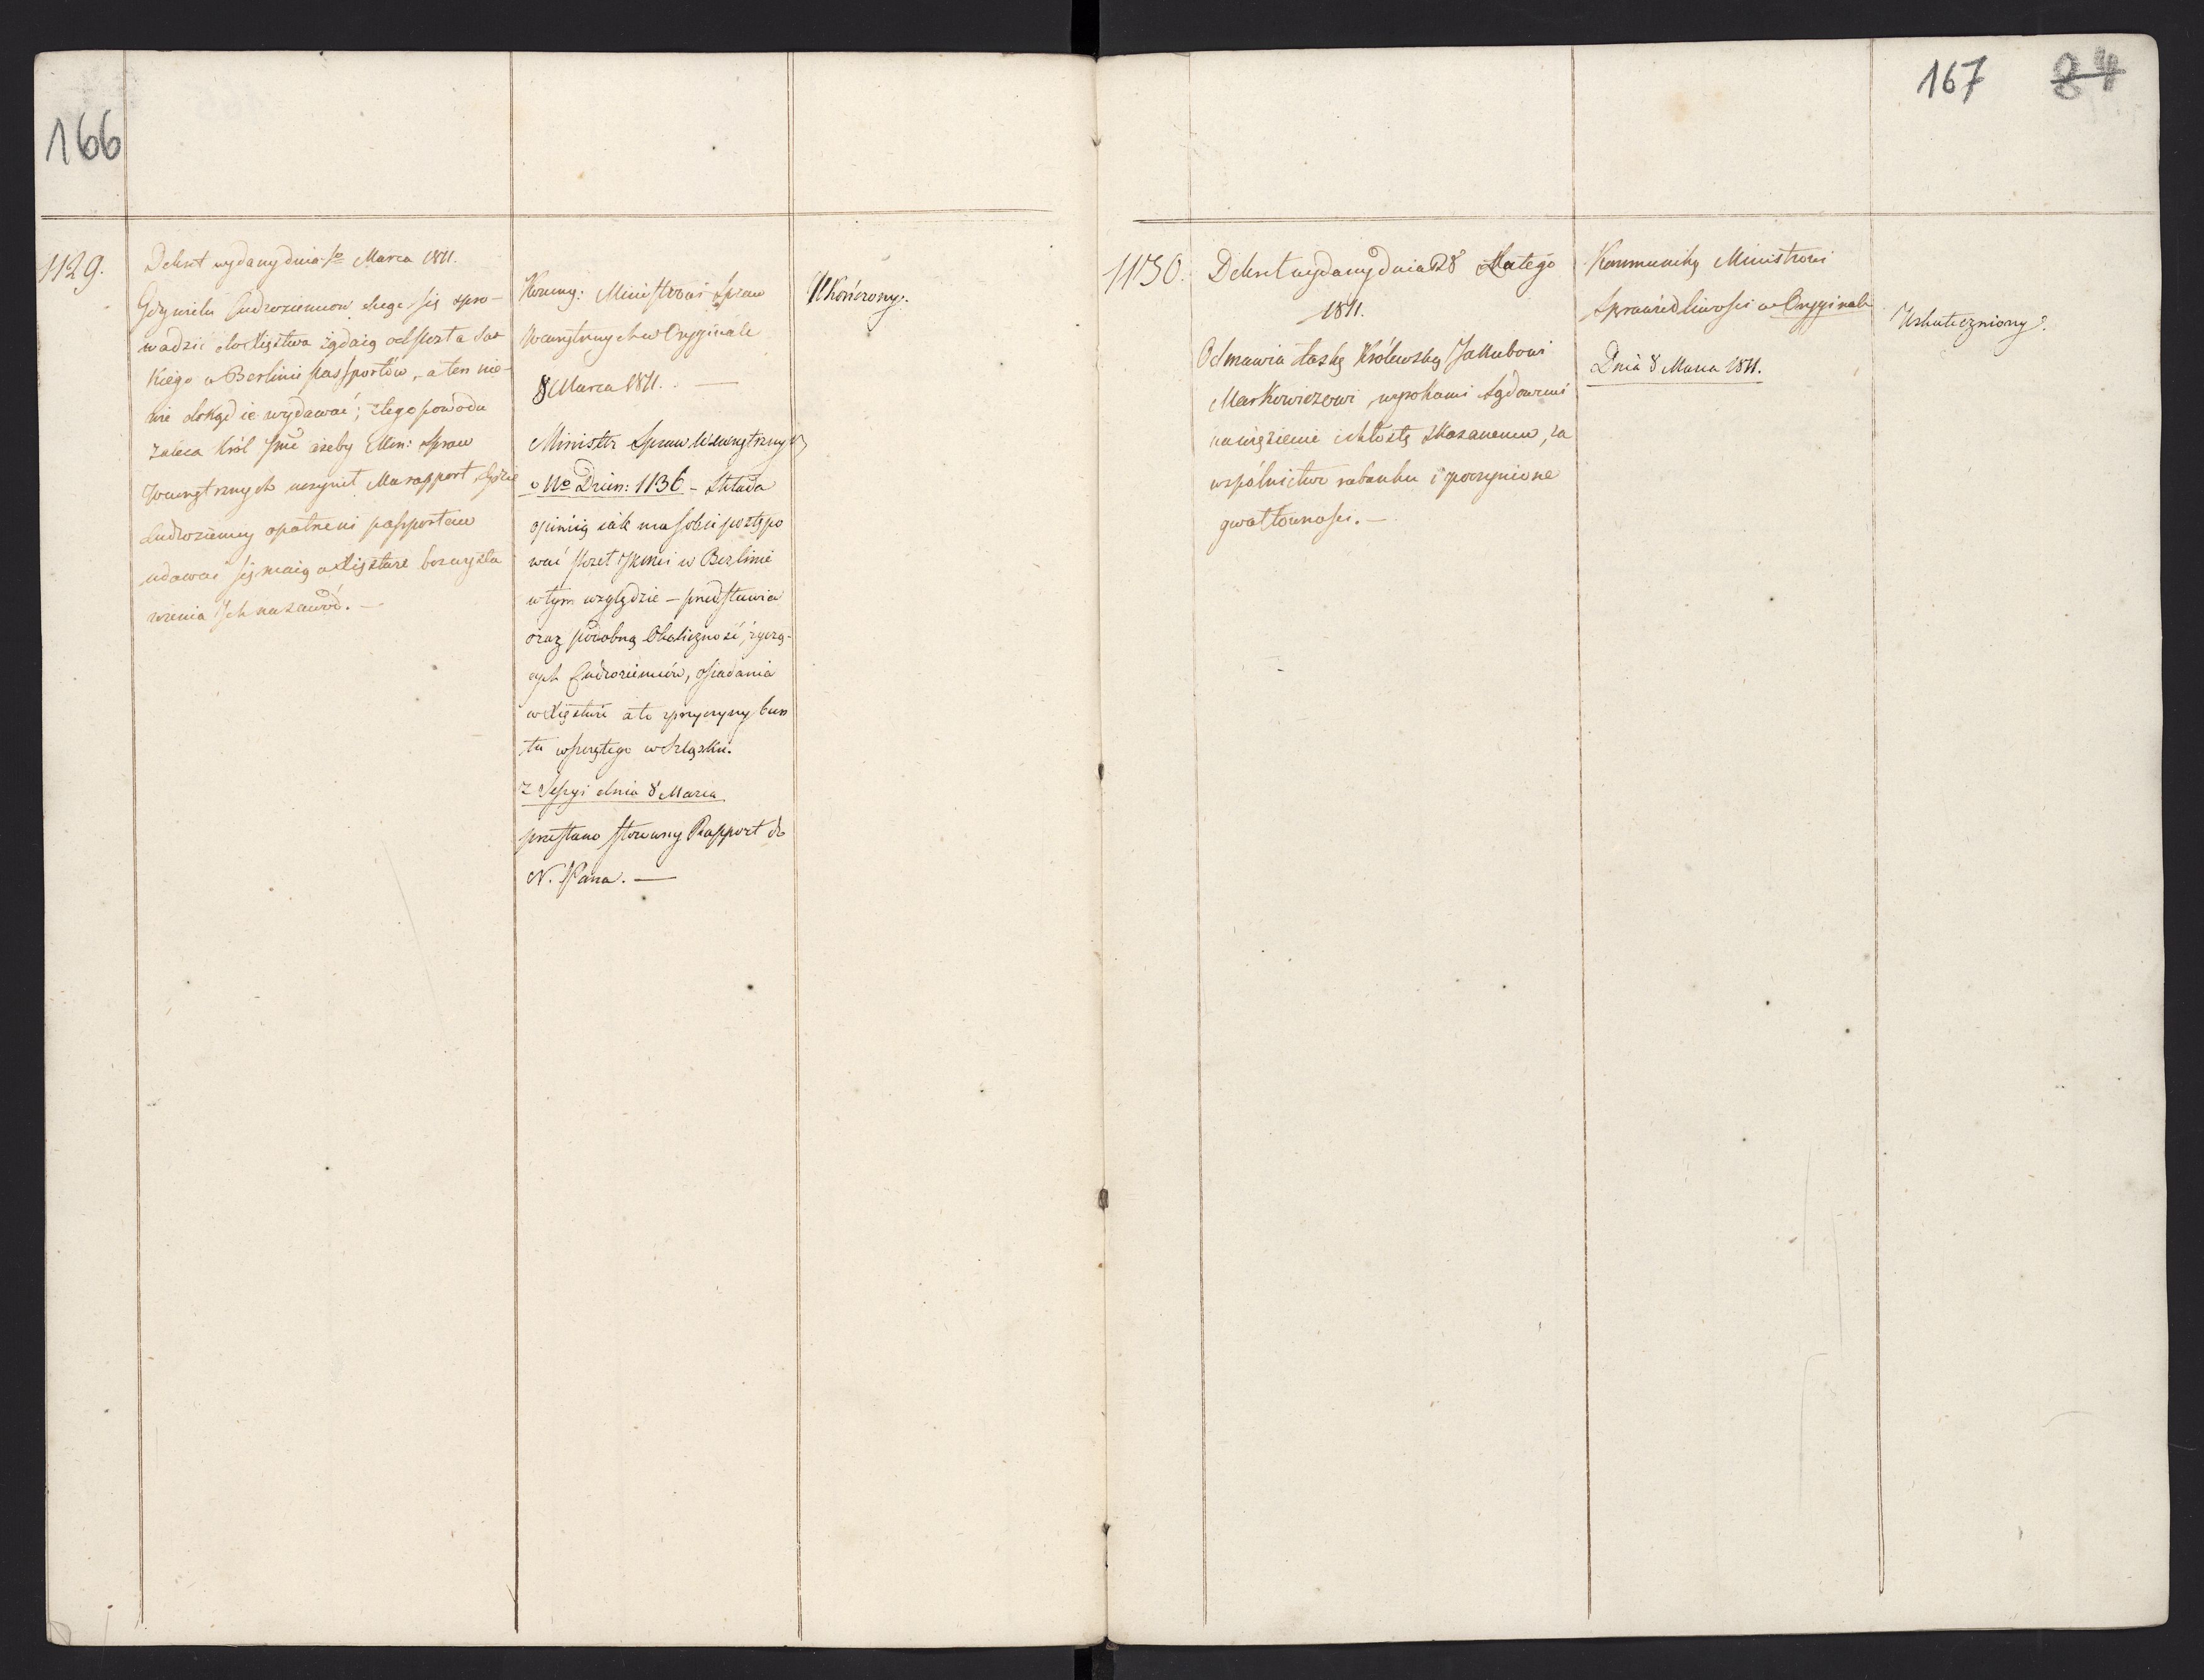 166
1129.
Dekret wydany dnia 1o Marca 1811.
Gdy wielu Cudzoziemców chcąc się spro-
wadzić do Xięstwa żądaią od Posła Sas
kiego w Berlinie passportów, a ten nie-
wie dokąd ie wydawać; z tego powodu
zaleca Król Jmć ażeby Min: Spraw
Wewnętrznych uczynił Mu rapport, gdzie
Cudzoziemcy opatrzeni passportem
udawać się maią w Xięstwie bez wysta
wienia Ich na zawód. —
Kommu: Ministrowi Spraw
Wewnętrznych w Oryginale
8 Marca 1811. —
Minister Spraw Wewnętrznych
No Dzien: 1136 — Składa
opinią iak ma sobie postępo
wać Poseł w Berlinie
w tym względzie — przedstawia
oraz podobną Okoliczność, życzą-
cych Cudzoziemców, osiadania
w Xięstwie a to z przyczyny bun
tu wszczętego w Szląsku.
z Sessyi dnia 8 Marca
przesłano stosowny Rapport do
N. Pana. —
Ukończony.
167 84
1130.
Dekret wydany dnia 28 Lutego
1811.
Odmawia łaskę Królewską Jakubowi
Markowiczowi, wyrokami Sądowemi
na więzienie i chłostę skazanemu, za
wspólnictwo rabunku i poczynione
gwałtowności. —
Kommunikuię Ministrowi
Sprawiedliwości w Oryginale
Dnia 8 Marca 1811.
Uskuteczniony.